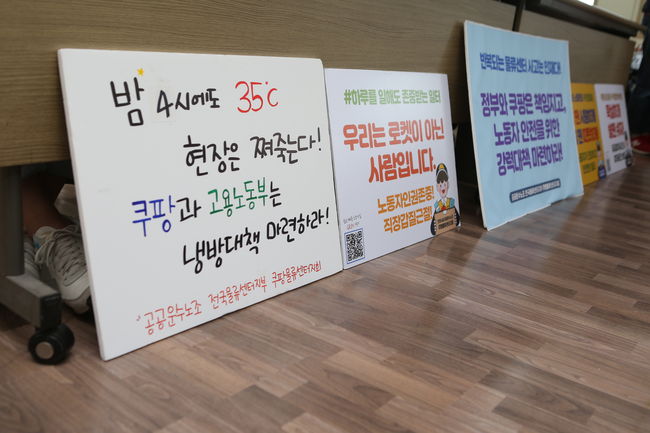 밤 4시에도 35℃
현장은 쪄죽는다!
쿠팡과 고용노동부는
냉방대책 마련하라!
공공운수노조 전국물류센터지부 쿠팡물류센터지회
#하루를 일해도 존중받는 일터
우리는 로켓이 아닌
사람입니다.
노동자인권존중,
직장갑질근절!
반복되는 물류센터 사고는 인재다!
정부와 쿠팡은 책임지고,
노동자 안전을 위한
강력대책 마련하라!